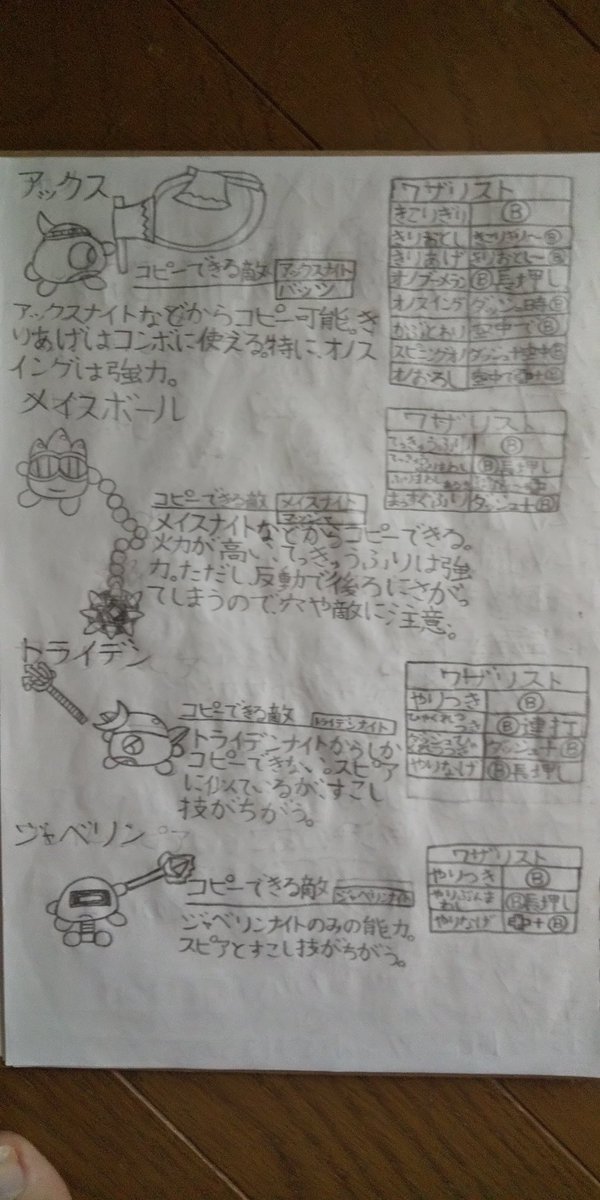 アックス
コピーできる敵 アックスナイト
バッツ
アックスナイトなどからコピー可能。き
りあげはコンボに使える。特に、オノス
イングは強力。
ワザリスト
きこりぎり Ⓑ
きりおとし きこりぎり〜Ⓑ
きりあげ きりおとし〜Ⓑ
オノブーメラン Ⓑ長押し
オノスイング ダッシュ時Ⓑ
かぶとおり 空中でⒷ
スピニングオノ ダッシュ+空中Ⓑ
オノおろし 空中で
メイスボール
コピーできる敵 メイスナイト
メイスナイトなどからコピーできる。
火力が高い、てっきゅうふりは強
力。ただし、反動で後ろにさがっ
てしまうので、穴や敵に注意。
ワザリスト
てっきゅうふり Ⓑ
Ⓑ長押し
まっすぐふり ダッシュ+Ⓑ
トライデン
コピーできる敵 トライデンナイト
トライデンナイトからしか
コピーできない。スピア
に似ているが、すこし
技がちがう。
ワザリスト
やりつき Ⓑ
ひゃくれつつき Ⓑ連打
ダッシュ+Ⓑ
やりなげ Ⓑ長押し
ジャベリン
コピーできる敵 ジャベリンナイト
ジャベリンナイトのみの能力。
スピアとすこし技がちがう。
ワザリスト
やりつき Ⓑ
やりぶんまわし Ⓑ長押し
やりなげ +Ⓑ